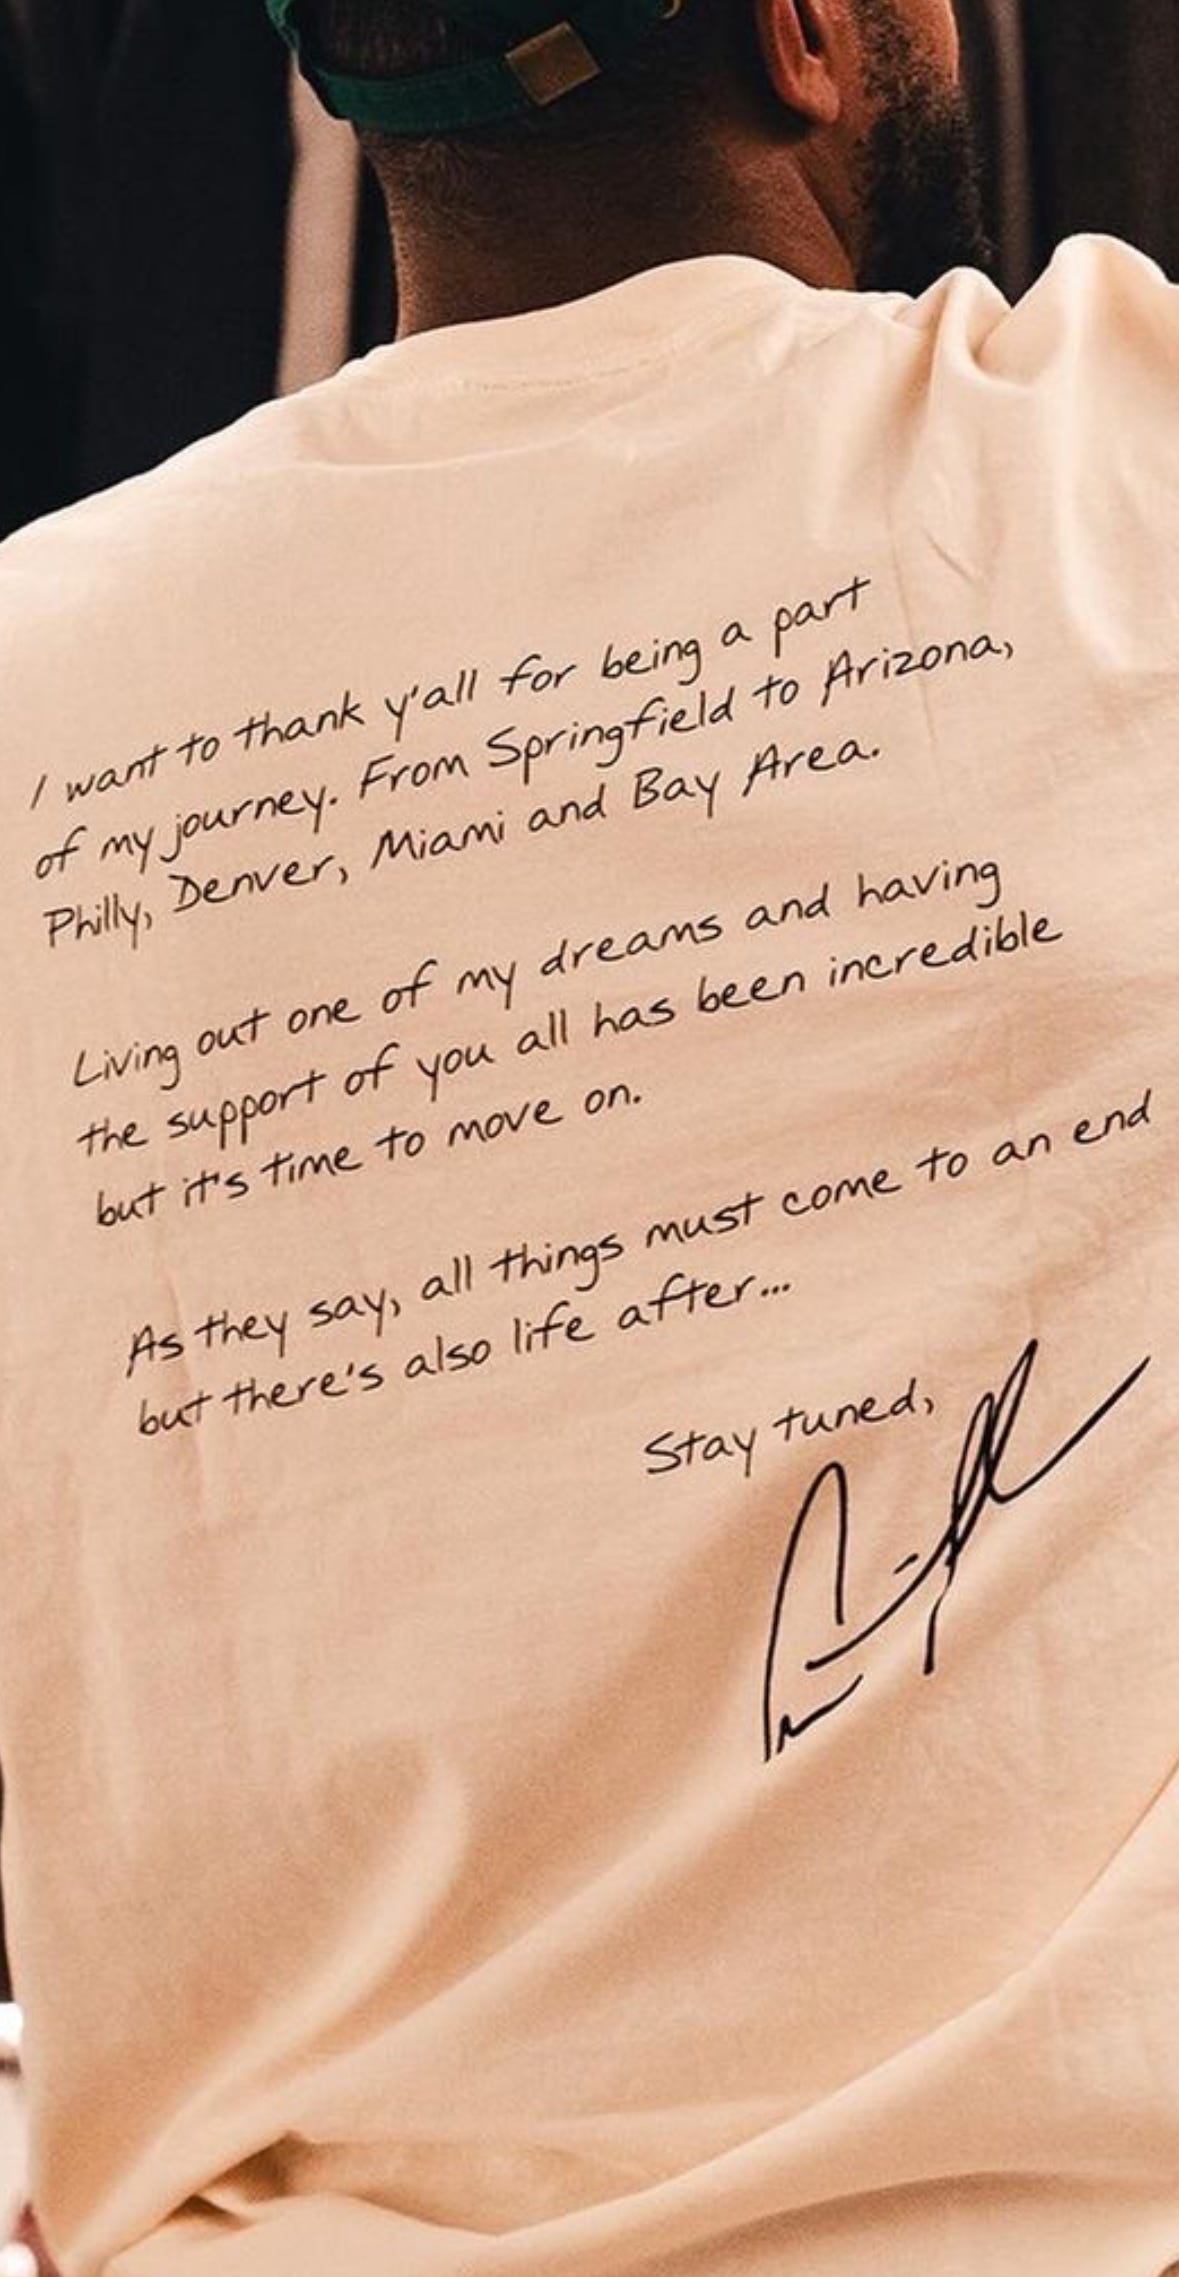 I want to thank y'all for being a part
of my journey. From Springfield to Arizona,
Philly, Denver, Miami and Bay Area.
Living out one of my dreams and having
the support of you all has been incredible
but it's time to move on.
As they say, all things must come to an end
but there's also life after...
Stay tuned,